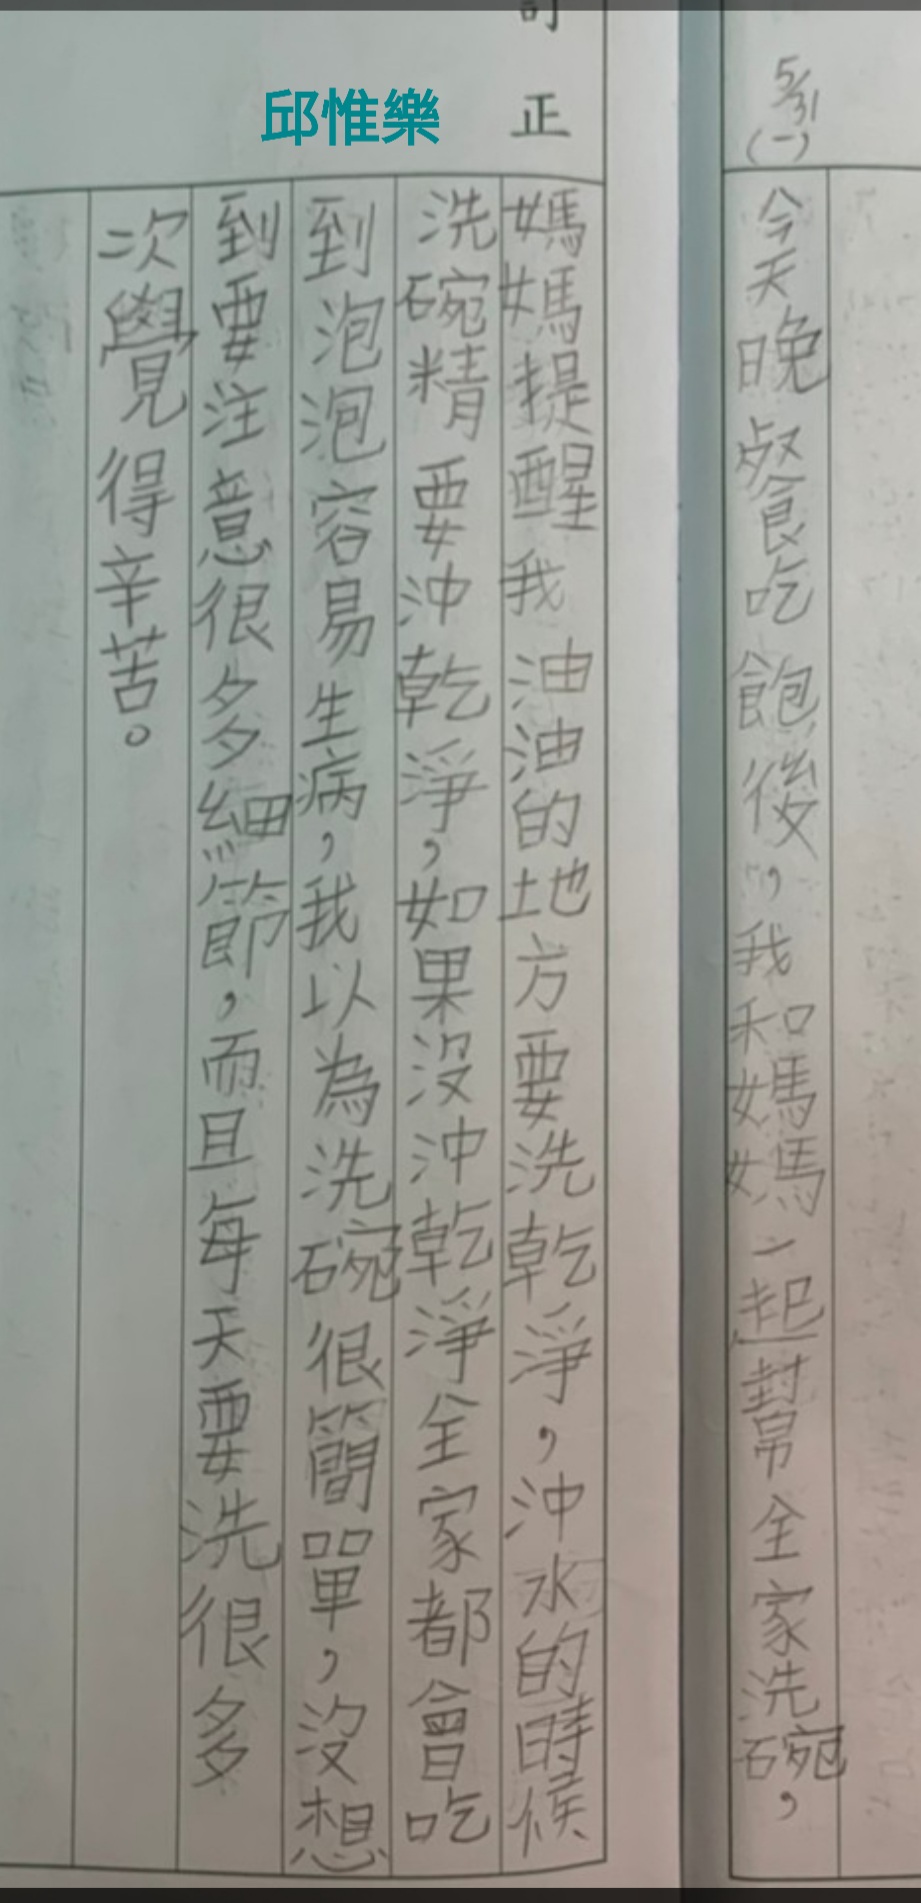 5/31
(一)
今天晚餐吃飽後,我和媽媽一起幫全家洗碗,
訂正
邱惟樂
媽媽提醒我油油的地方要洗乾淨,沖水的時候
洗碗精要沖乾淨,如果沒沖乾淨全家都會吃
到泡泡容易生病,我以為洗碗很簡單,沒想
到要注意很多細節,而且每天要洗很多
次覺得辛苦。